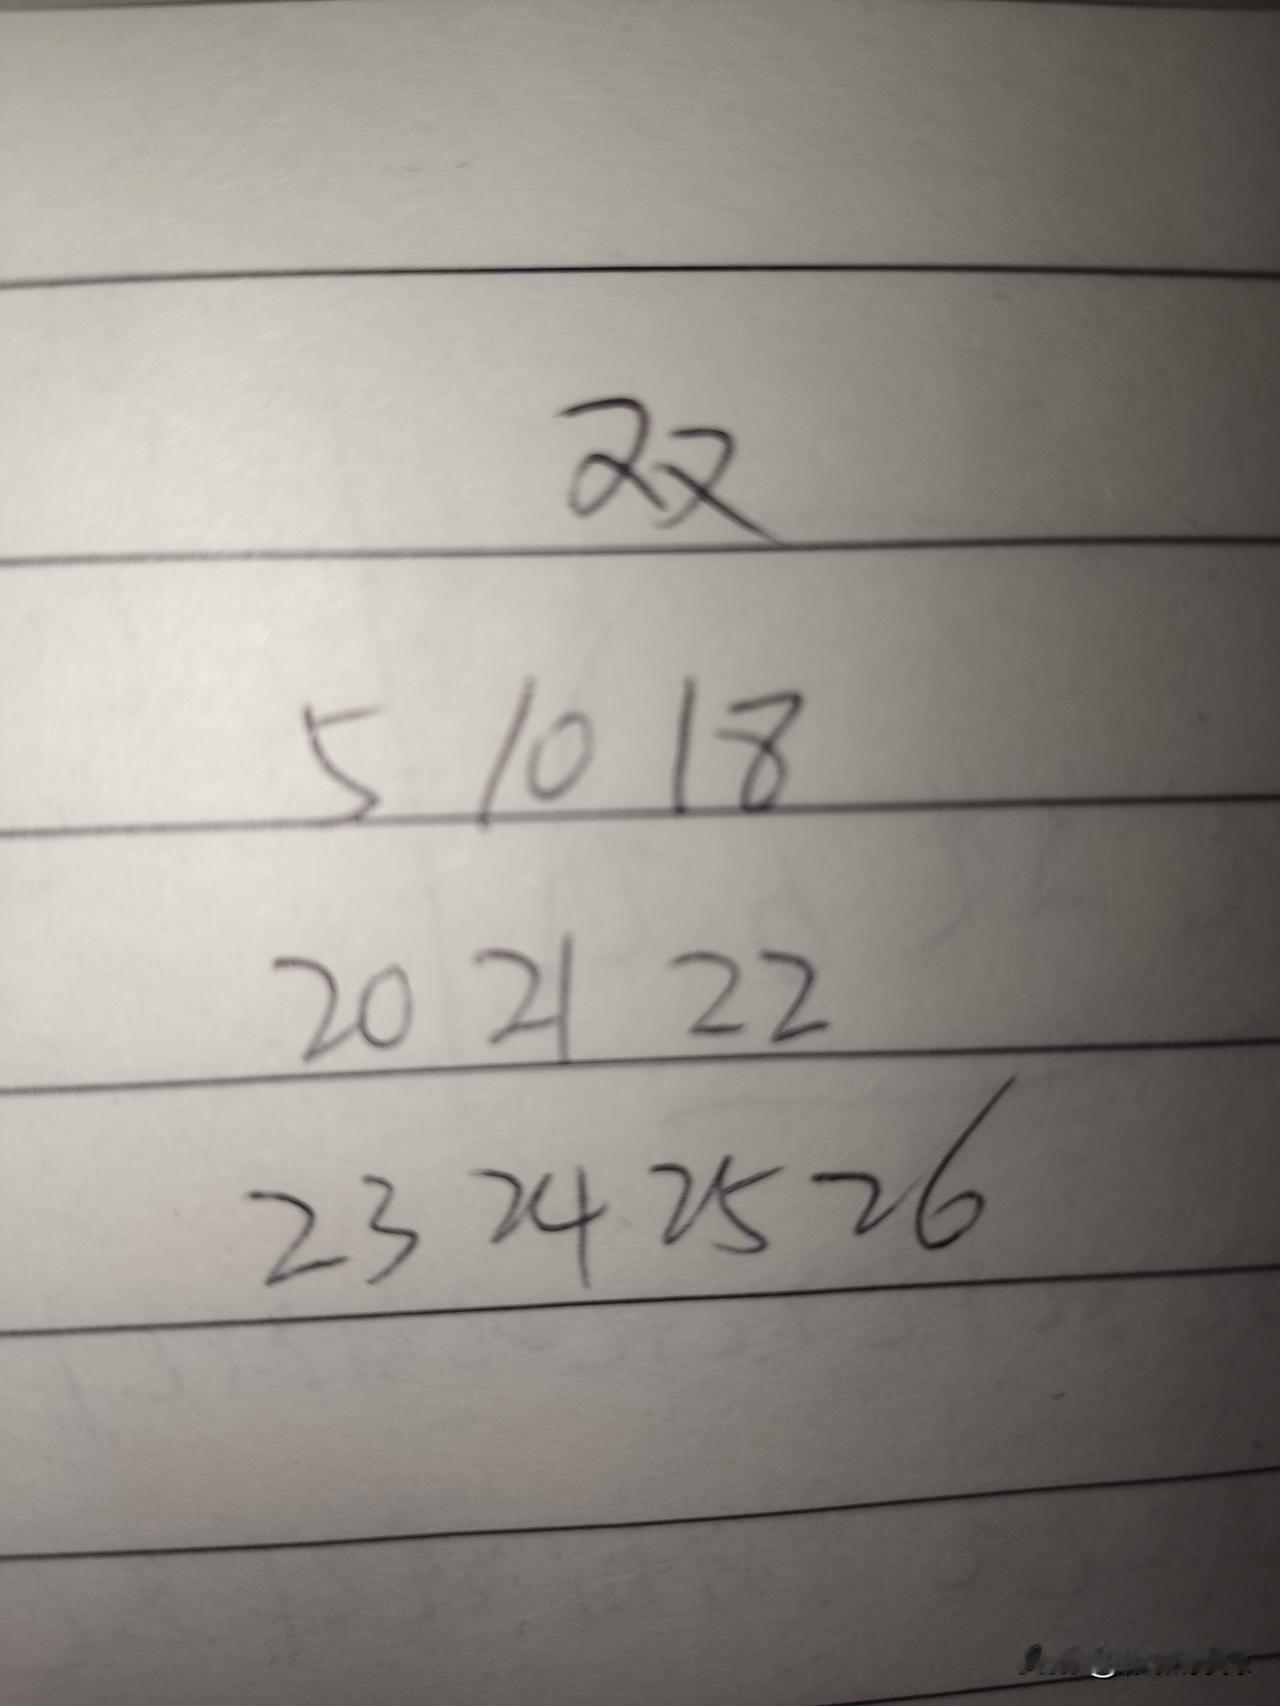 双
5 10 18
20 21 22
23 24 25 26